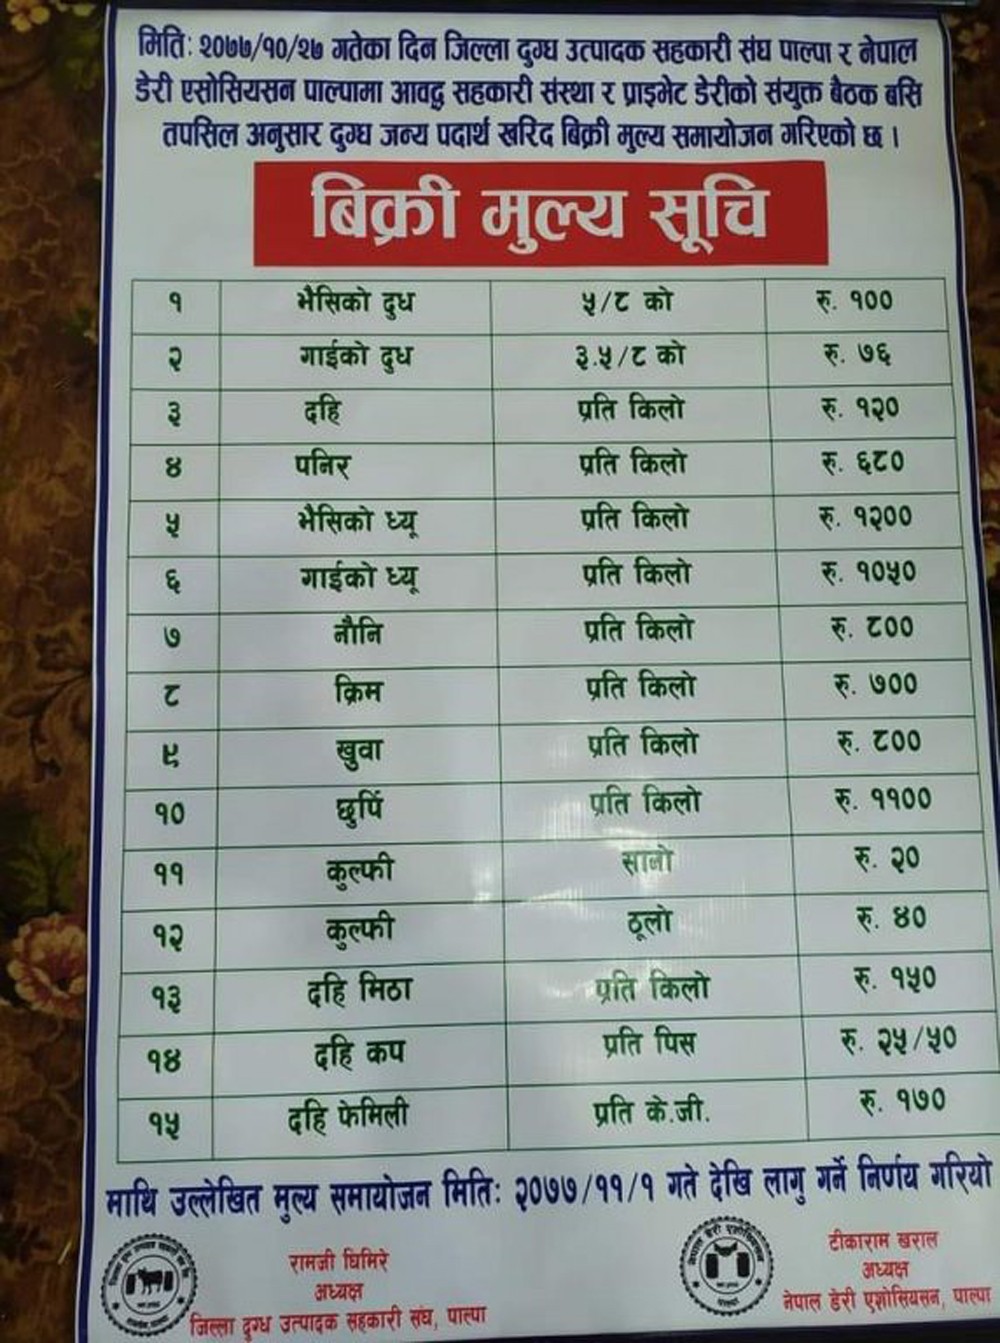 मितिः २०७७/१०/२७ गतेका दिन जिल्ला दुग्ध उत्पादक सहकारी संघ पाल्पा र नेपाल
डेरी एसोसियसन पाल्पामा आवद्ध सहकारी संस्था र प्राइभेट डेरीको संयुक्त बैठक बसि
तपसिल अनुसार दुग्ध जन्य पदार्थ खरिद बिक्री मुल्य समायोजन गरिएको छ ।
बिक्री मुल्य सूचि
१ भैसिको दुध ५/८ को रु. १००
२ गाईको दुध ३.५/८ को रु. ७६
३ दहि प्रति किलो रु. १२०
४ पनिर प्रति किलो रु. ६८०
५ भैसिको ध्यू प्रति किलो रु. १२००
६ गाईको ध्यू प्रति किलो रु. १०५०
७ नौनि प्रति किलो रु. ८००
८ क्रिम प्रति किलो रु. ७००
९ खुवा प्रति किलो रु. ८००
१० छुर्पि प्रति किलो रु. ११००
११ कुल्फी सानो रु. २०
१२ कुल्फी ठूलो रु. ४०
१३ दहि मिठा प्रति किलो रु. १५०
१४ दहि कप प्रति पिस रु. २५/५०
१५ दहि फेमिली प्रति के.जी. रु. १७०
माथि उल्लेखित मुल्य समायोजन मितिः २०७७/११/१ गते देखि लागु गर्ने निर्णय गरियो
रामजी घिमिरे
अध्यक्ष
जिल्ला दुग्ध उत्पादक सहकारी संघ, पाल्पा
नेपाल डेरी एशोसियसन
पाल्पा
टीकाराम खराल
अध्यक्ष
नेपाल डेरी एशोसियसन, पाल्पा